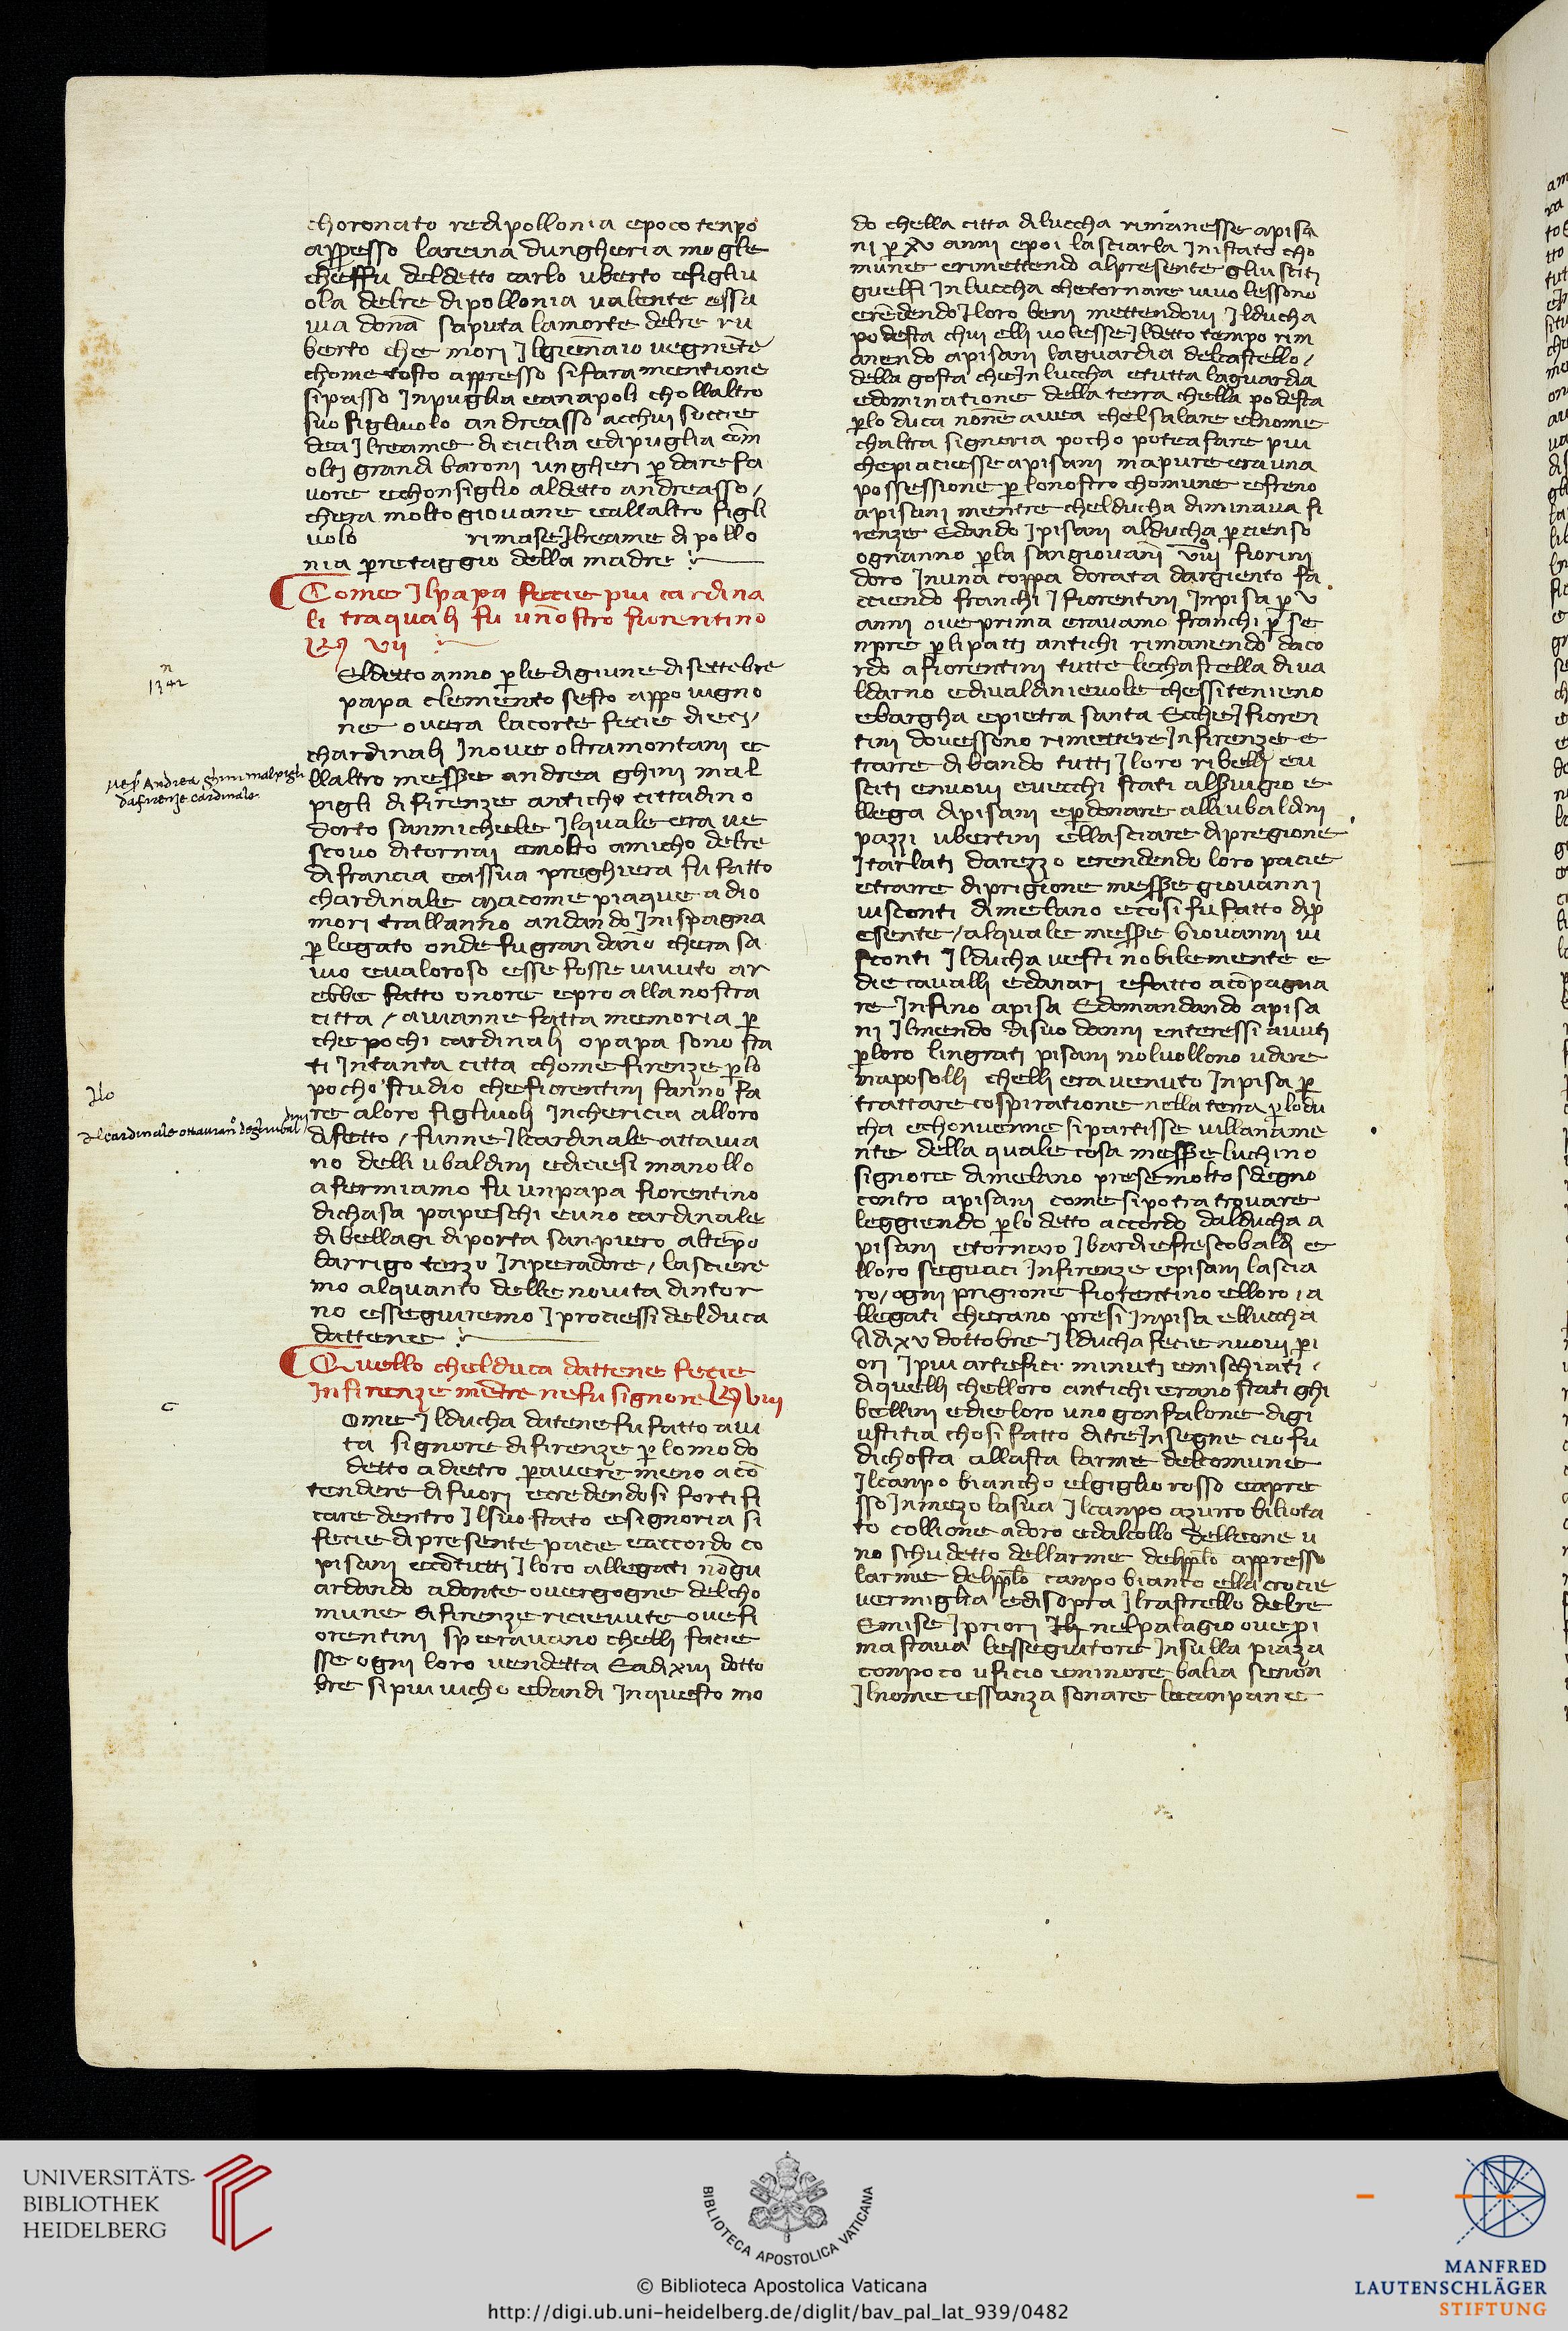 choronato re di pollonia e poco tenpo
appresso la reina dungheria mogle
cheffu del detto carlo uberto e figliu
ola del re di pollonia valente e ssa
via donā saputa la morte del re ru
berto che mori il giēnaio vegnēte
chome tosto appresso si fara mentione
si passo in puglia e a napoli chollaltro
suo figliuolo andreasso acchui succie
dea il reame di cicilia e di puglia cōm
olti grandi baroni ungheri p dare fa
uore e chonsiglio al detto andreasso /
chera molto giovane e all altro figli
uolo rimase il reame di pollo
nia p retaggio della madre
Come il papa fecie piu cardina
li tra quali fu un nostro fiorentino
Rͣ vii
n
1342
El detto anno p le digiune di settēbre
papa clemento sesto appo vigno
ne overa la corte fecie dieci /
chardinali i nove oltramontani e
Mesˢ Andrea ghini malpigli
da firenze cardinale
llaltro messere andrea ghini mal
pigli di firenze anticho cittadino
dorto san michele il quale era ve
scovo di tornai e molto amicho del re
di francia e a ssua preghiera fu fatto
chardinale ma come piaque a dio
mori trallanno andando in ispagna
p legato onde fu gran dāno chera sa
vio e valoroso e sse fosse vivuto ar
ebbe fatto onore e pro alla nostra
citta / avianne fatta memoria p
che pochi cardinali o papa sono sta
ti in tanta citta chome firenze p lo
pocho studio che fiorentini fanno fa
Nō
re a loro figliuoli in chericia alloro
Il cardinale ottaviano degli ubaldini
difetto / funne il cardinale attavia
no delli ubaldini e diciesi ma nollo
afermiamo fu un papa fiorentino
di chasa papeschi e uno cardinale
di bellagi di porta san piero al tēpo
darrigo terzo inperadore / lasciere
mo alquanto delle novita dintor
no e sseguiremo i prociessi del duca
dattene
Quello chel duca dattene fecie
in firenze mētre ne fu signore Rͣ viii
c
ome il ducha datene fu fatto a vi
ta signore di firenze p lo modo
detto adietro p avere meno a cō
tendere di fuori e credendosi fortifi
care dentro il suo stato e signoria si
fecie di presente pacie e accordo co
pisani e cō tutti i loro allegati nō gu
ardando ad onte o vergogne del cho
mune di firenze ricievute ove fi
orentini speravano chelli facie
sse ogni loro vendetta E a di xiii dotto
bre si piuvicho e bandi in questo mo
do chella citta di luccha rimanesse a pisa
ni p xv anni e poi lasciarla in istato cho
mūne e rimettendo al presente gli usciti
guelfi in luccha che tornare vi volessono
e rēdendo i loro beni mettendovi il ducha
podesta chui elli volesse il detto tempo rim
anendo a pisani la guardia del castello /
della gosta che in luccha e tutta la guardia
e dominatione della terra chella podesta
p lo duca nonē avea chel salare e l nome
chaltra signoria pocho potea fare piu
che piaciesse a pisani ma pure era una
possessione p lo nostro chomune e freno
a pisani mentre chel ducha diminava fi
renze E dando i pisani al ducha p cienso
ognanno p la san giovāni viiiͫ fiorini
doro in una coppa dorata dargiento fa
cciendo franchi i fiorentini in pisa p v
anni ove prima eravamo franchi p se
npre p li patti antichi rimanendo daco
rdo a fiorentini tutte le chastella di va
ldarno e di valdinievole che ssi tenieno
e bargha e pietra santa E che i fioren
tini dovessono rimettere in firenze e
trarre di bando tutti i loro ribelli e u
sciti e nuovi e vecchi stati al servigio e
llega di pisani e p donare alli ubaldini
pazzi ubertini e llasciare di pregione
i tarlati darezzo e rendendo loro pacie
e trarre di prigione messere giovanni
visconti di melano e cosi fu fatto di p
esente / al quale messere Giovanni vi
sconti il ducha vesti nobilemente e
die cavalli e danari e fatto acōpagna
re infino a pisa E domandando a pisa
ni il mendo di suo danni enteressi avuti
p loro lingrati pisani nol vollono udire
ma posolli chelli era venuto in pisa p
trattare cospiratione nella terra p lo du
cha e chonvenne si partisse villaname
nte della quale cosa messere luchino
signore di melano prese molto sdegno
contro a pisani come si potra trovare
leggiendo p lo detto accordo dal ducha a
pisani e tornaro i bardi e frescobaldi e
lloro seguaci in firenze e pisani lascia
ro / ogni prigione fiorentino e lloro / a
llegati cherano presi in pisa e lluccha
A di xv dottobre il ducha fecie nuovi p i
ori i piu artefici minuti e mischiati /
di quelli chelloro antichi erano stati ghi
bellini e die loro uno gonfalone di gi
ustitia chosi fatto di tre insegne cio fu
di chosta allasta larme del comune
il canpo biancho el giglio rosso e apre
sso in mezo la sua il canpo azurro biliota
to col lione adoro e dal collo del leone u
no schudetto dellarme del pplō appresso
larme del pplō canpo bianco e lla crocie
vermiglia e di sopra il rastrello del re
E mise i priori nel palagio ove pi
ma stava lessegutore in sulla piazza
con poco uficio e minore balia se non
il nome e ssanza sonare le canpane
UNIVERSITÄTS-
BIBLIOTHEK
HEIDELBERG
BIBLIOTECA APOSTOLICA VATICANA
© Biblioteca Apostolica Vaticana
http://digi.ub.uni-heidelberg.de/diglit/bav_pal_lat_939/0482
MANFRED
LAUTENSCHLÄGER
STIFTUNG